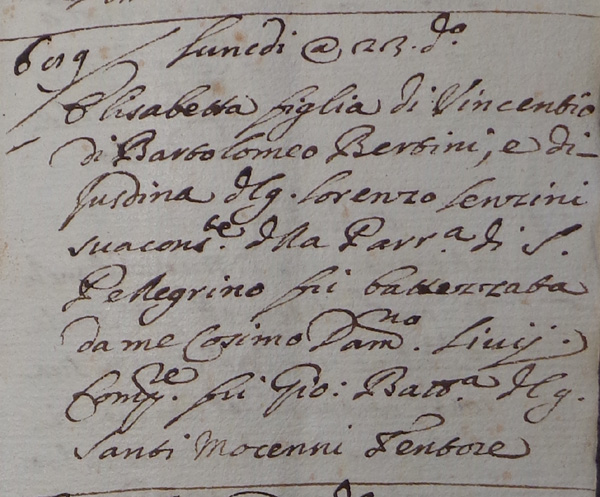 609 Lunedi @ 23. do
Elisabetta figlia di Vincentio
di Bartolomeo Bertini, e di
Jusdina dlg. Lorenzo Lenzini
sua conste. dlla Parra. di S.
Pellegrino fù battezzata
da me Cosimo Damno. Livij.
Compre. fù Gio: Batta. dlg.
Santi Mocenni Tentore